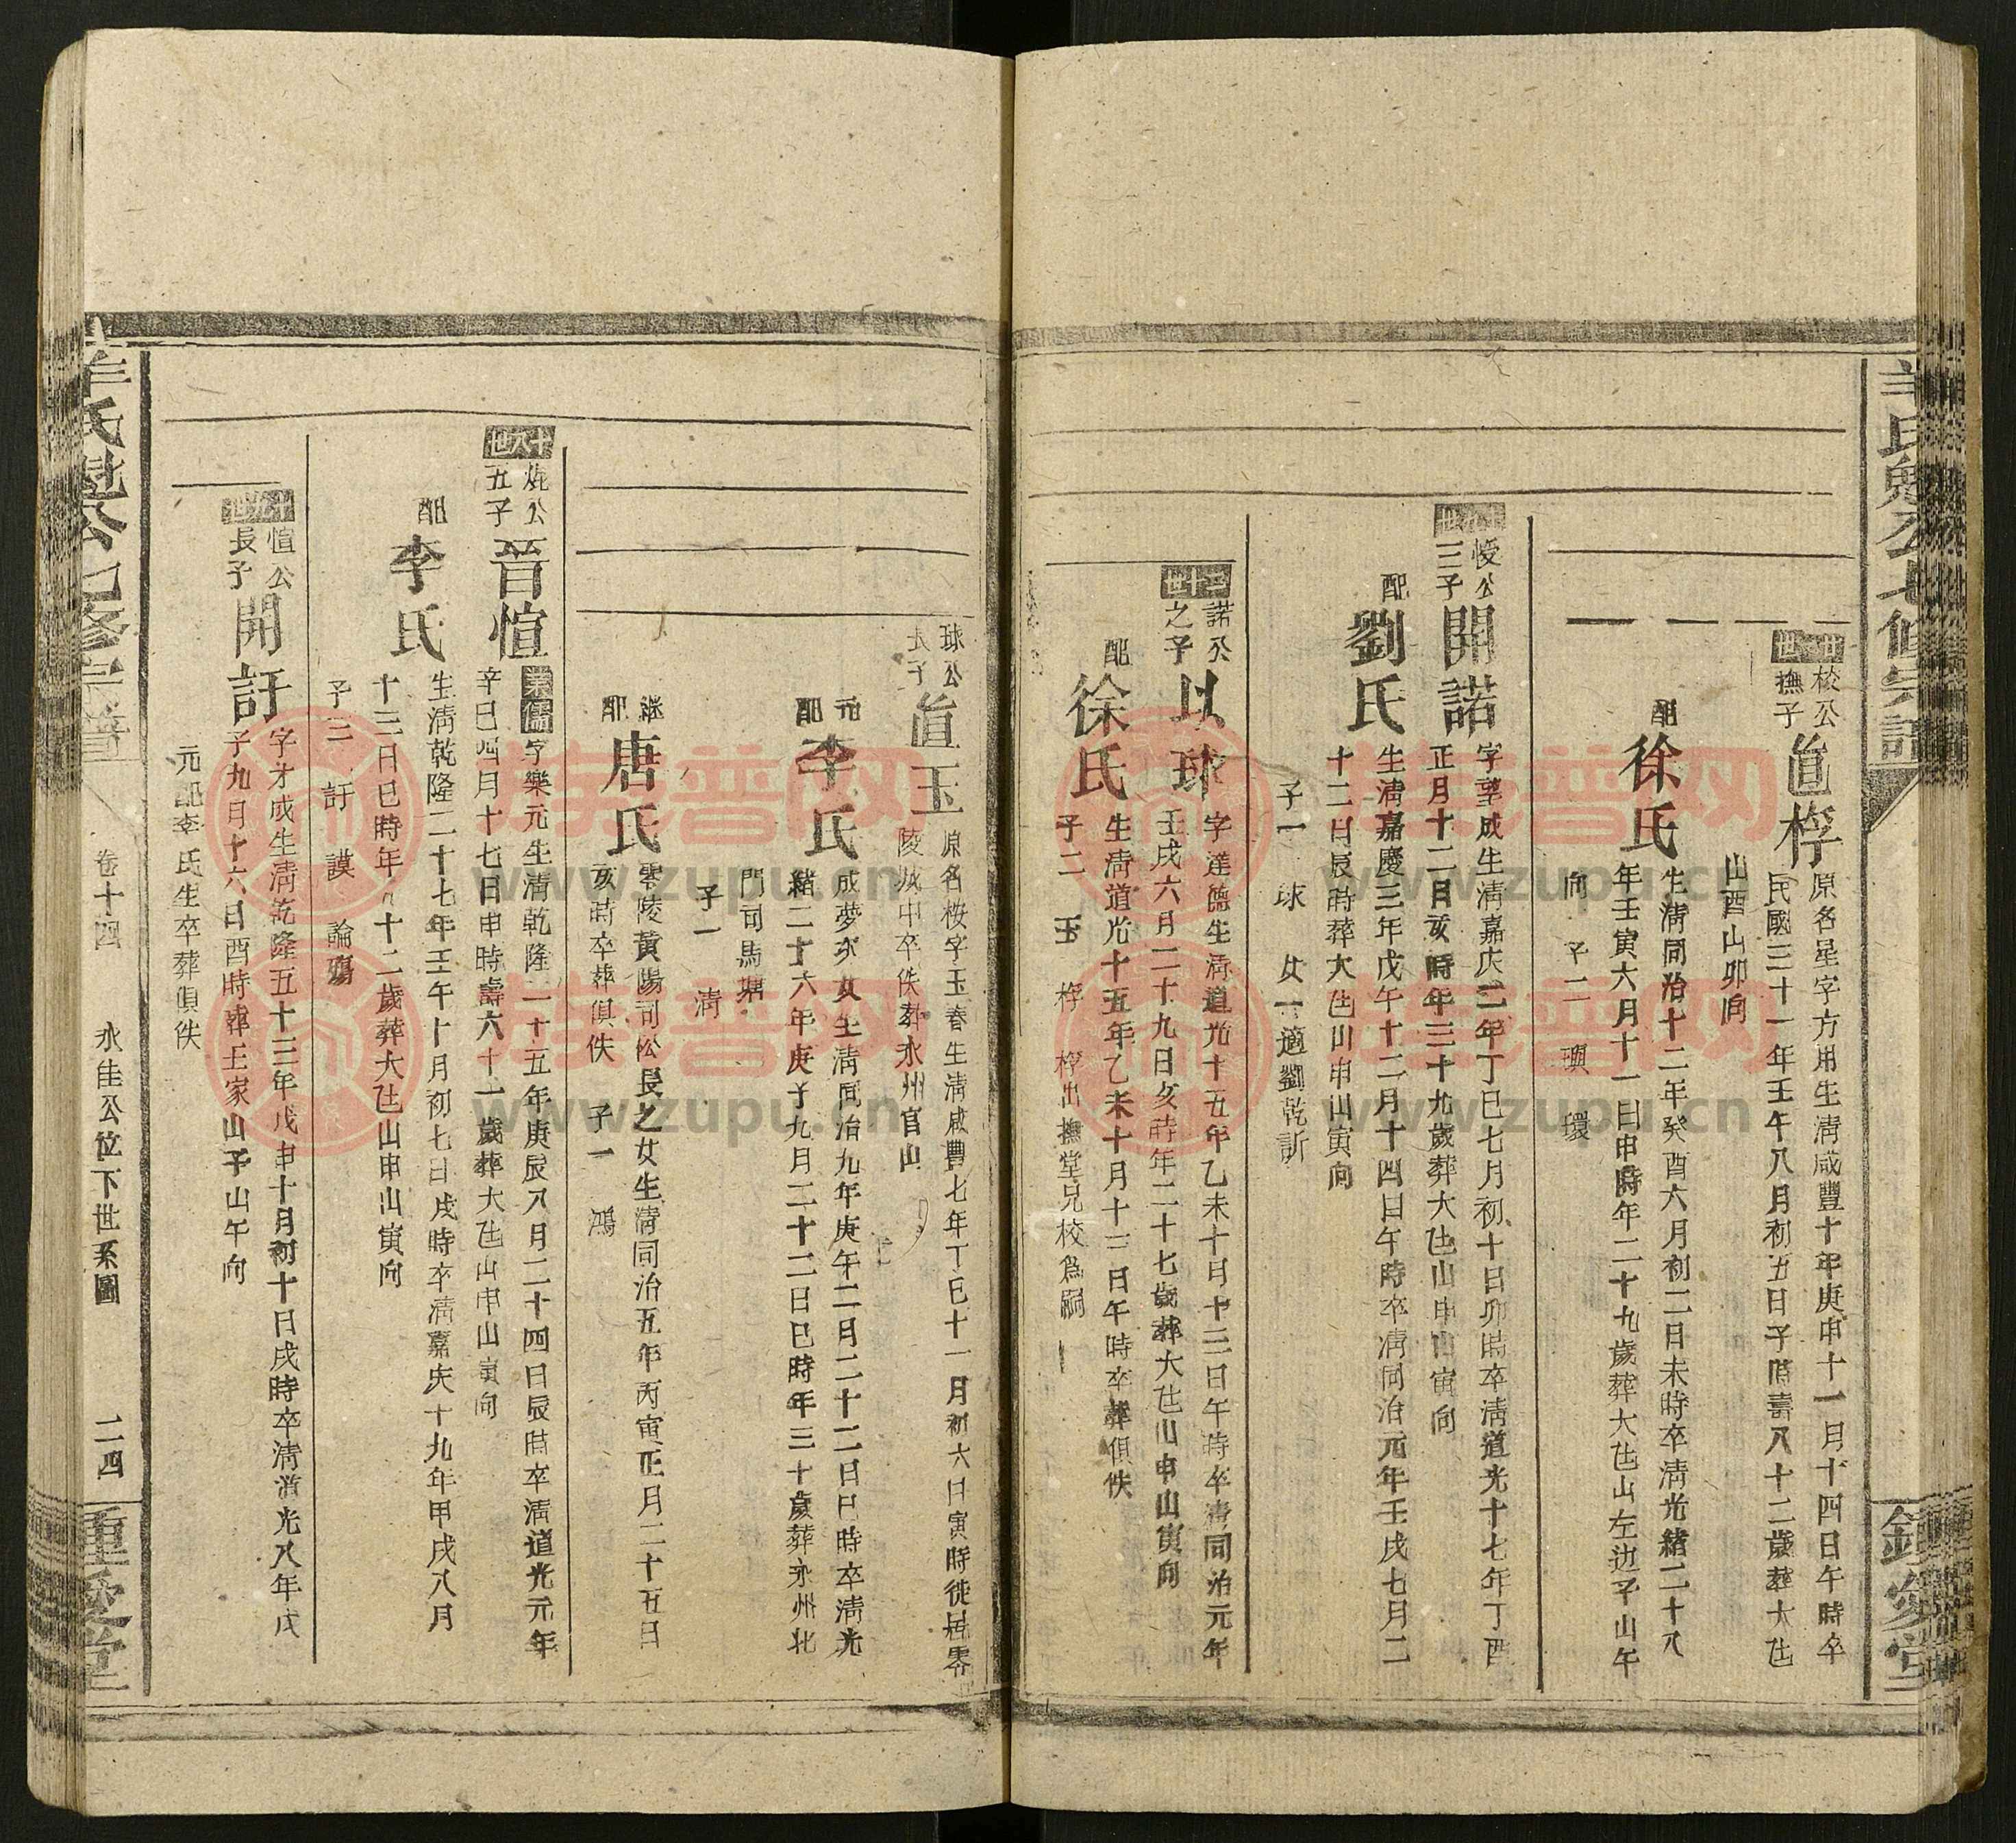 廿一世
校公
撫子
直桴
原名星字方用生清咸豐十年庚申十一月十四日午時卒
民國三十一年壬午八月初五日子時壽八十二歲葬大㐌
山酉山卯向
配
徐氏
生清同治十二年癸酉六月初二日未時卒清光緒二十八
年壬寅六月十一日申時年二十九歲葬大㐌山左边子山午
向 子二 璵 環
三子
開諾
字望成生清嘉庆二年丁巳七月初十日卯時卒清道光十七年丁酉
正月十二月亥時年三十九歲葬大㐌山申山寅向
配
劉氏
生清嘉慶三年戊午十二月十四日午時卒清同治元年壬戌七月二
十二日辰時葬大㐌山申山寅向
子一 球 女一 適劉乾訢
二十世
諾公
之子
以球
字達德生清道光十五年乙未十月十三日午時卒清同治元年
壬戌六月二十九日亥時年二十七歲葬大㐌山申山寅向
配
徐氏
生清道光十五年乙未十月十三日午時卒葬俱佚
子二 玉 桴 桴出撫堂兄校為嗣
球公
長子
直玉
原名桉字玉春生清咸豊七年丁巳十一月初六日寅時徙居零
陵城中卒佚葬永州官山
元配
李氏
成夢亥女生清同治九年庚午二月二十二日巳時卒清光
緒二十六年庚子九月二十二日巳時年三十歲葬永州北
門司馬塘
子一 清
継配
唐氏
零陵黃陽司松長之女生清同治五年丙寅正月二十五日
亥時卒葬俱佚 子一 鴻
十八世
焜公
五子
晉愃
業儒
字樂元生清乾隆二十五年庚辰八月二十四日辰時卒清道光元年
辛巳四月十七日申時壽六十一歲葬大㐌山申山寅向
配
李氏
生清乾隆二十七年壬午十月初七日戌時卒清嘉庆十九年甲戌八月
十三日巳時年八十二歲葬大㐌山申山寅向
子三 訏 謨 論殤
十九世
愃公
長子
開訏
字才成生清乾隆五十三年戊申十月初十日戌時卒清道光八年戊
子九月十六日酉時葬王家山子山午向
元配李氏生卒葬俱佚
卷十四
永佳公位下世系圖
二四
族谱网
www.zupu.cn